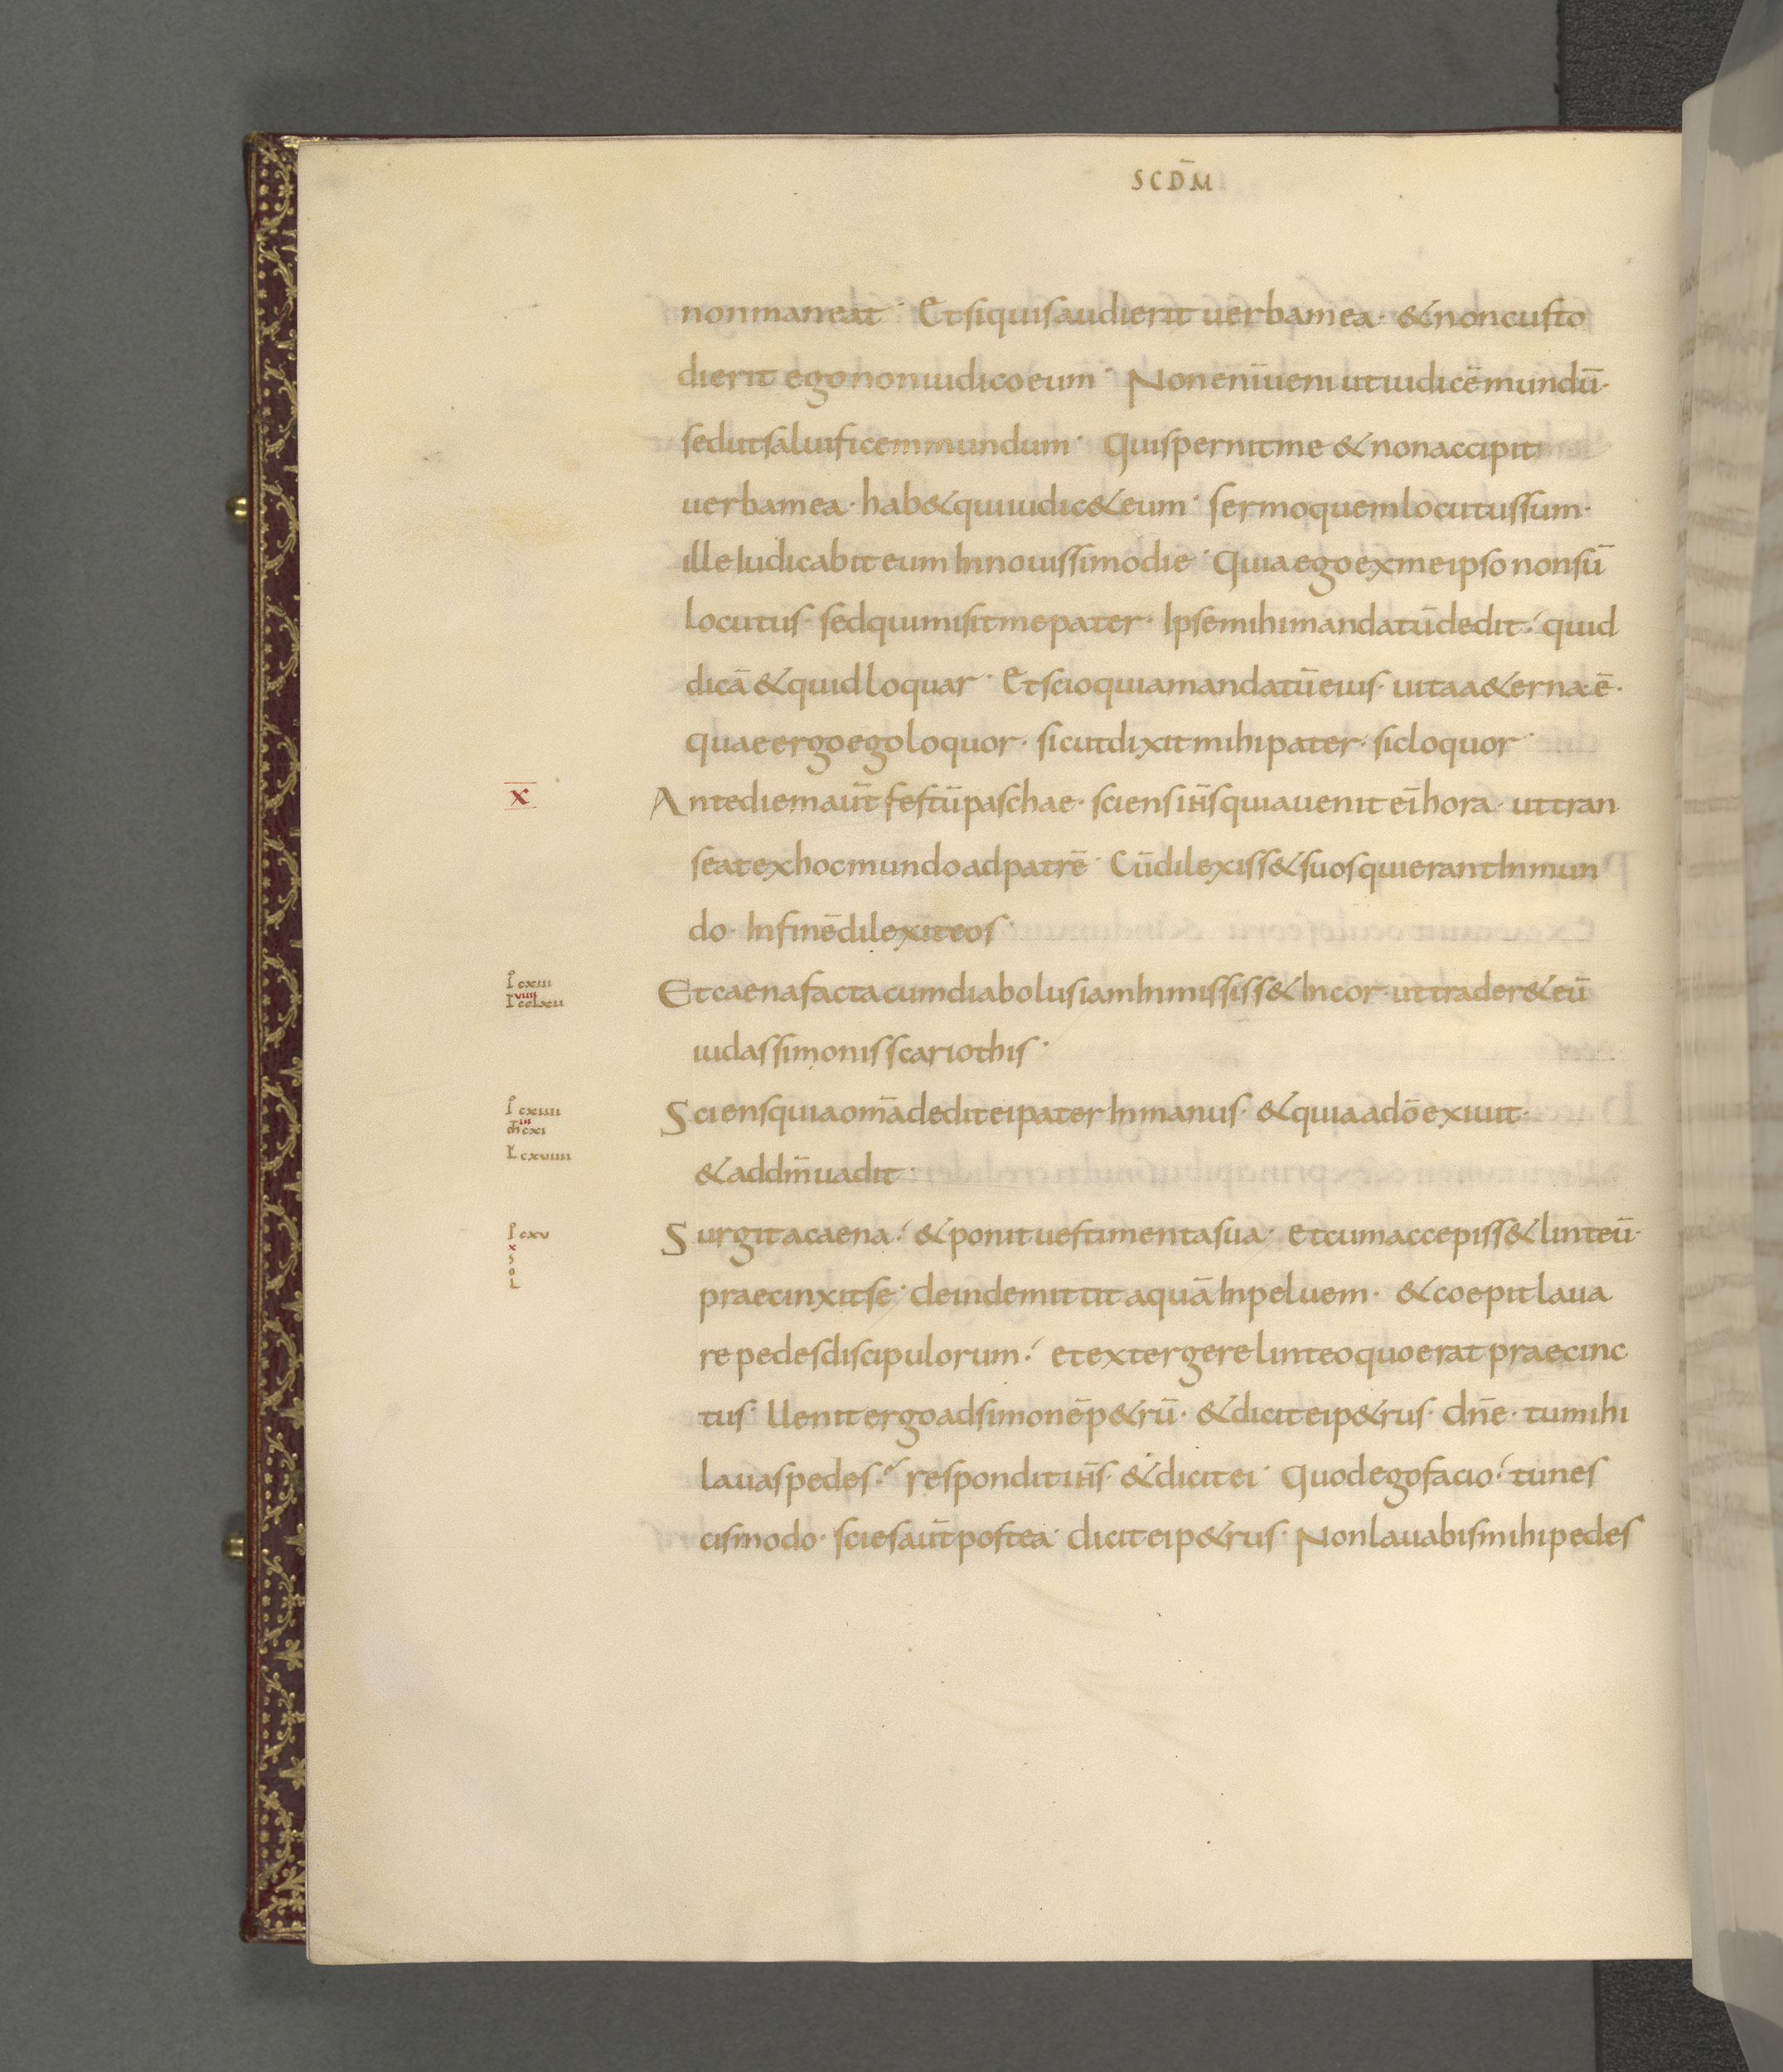 SCD̄M
nonmaneat· Etsiquisaudierit uerbamea· &noncusto
dierit egononiudicoeum· Nonenīueni utiudicēmundū·
sedutsaluificemmundum· Quispernitme &nonaccipit
uerbamea· hab&quiiudic&eum· sermoquemlocutussum·
ille Iudicabit eum Innouissimodie· Quiaegoexmeipso nonsū
locutus· sedquimisitmepater· Ipsemihimandatūdedit· quid
dicā &quidloquar· Etscioquiamandatūeius· uitaa&erna·ē·
quaeergoegoloquor· sicutdixitmihipater· sicloquor·
X
Antediemaūt festūpaschae· sciensih̄squiauenit eī hora· uttran
seatexhocmundoadpatrē· Cūdilexiss&suosquierantInmun
do· Infinēdilexiteos·
I cxiii
viiii
Etcaenafactacumdiabolusiaminmississ& Incor· uttrader&eū
iudassimonisscariothis·
I cxiiii
iii
m̄ cxi
L cxviiii
Sciensquiaom̄adediteipater Inmanus· &quiaadō exiuit·
&addm̄uadit·
I cxv
x
S
O
L
Surgitacaena· &ponituestimentasua· etcumaccepiss&linteū·
praecinxitse· deindemittit aquā Inpeluem· &coepitlaua
repedesdiscipulorum· etextergerelinteoquoeratpraecinc
tus· Uenit ergoadsimonēp&rū· &diciteip&rus· dn̄e· tumihi
lauaspedes· respondit ih̄s· &dicitei· Quodegofacio· tunes
cismodo· sciesaūtpostea· diciteip&rus· Nonlauabismihipedes